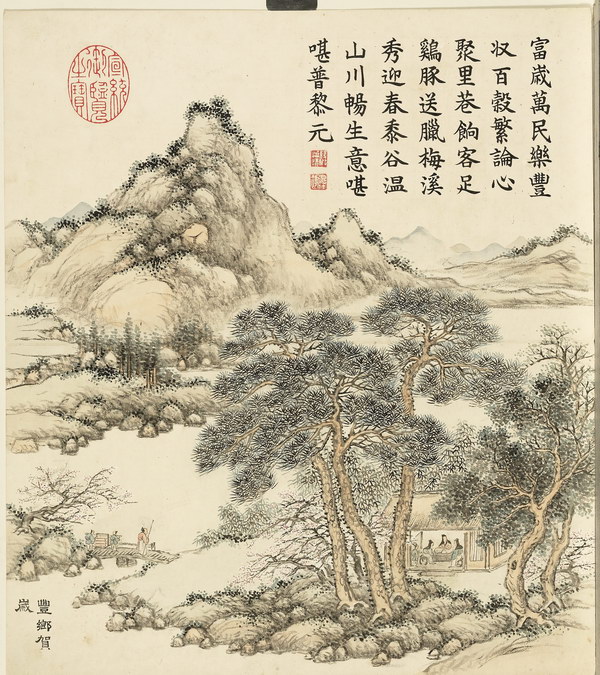 富歲萬民樂豐
収百穀繁論心
聚里巷餉客足
鷄豚送臘梅溪
秀迎春黍谷温
山川暢生意啿
啿普黎元
宣統
御覽
之寶
豐鄉賀
歲